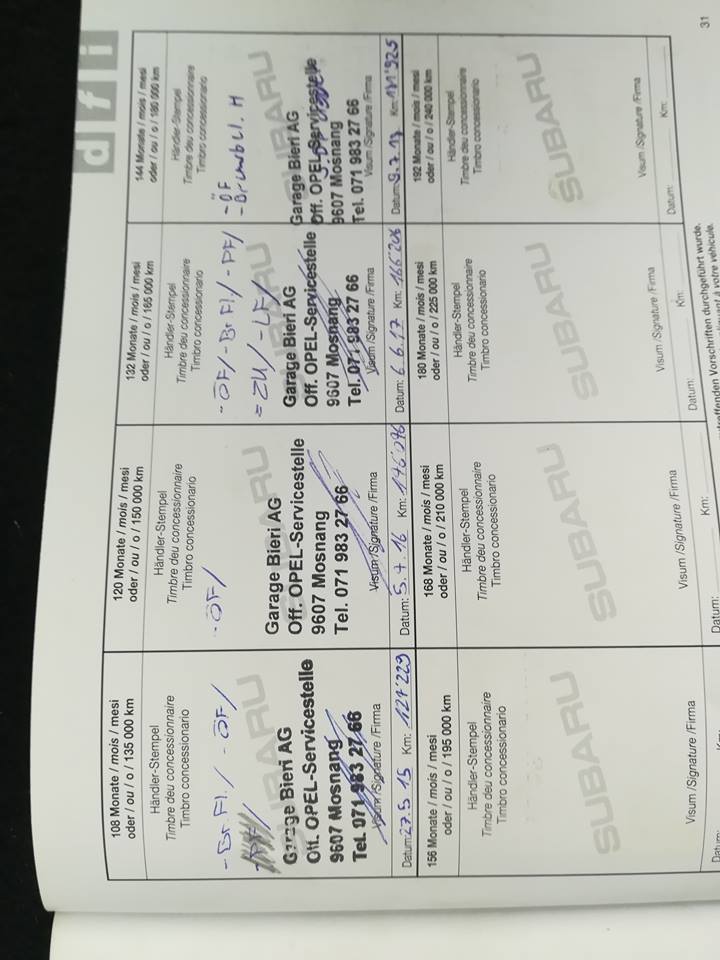 d f i
108 Monate / mois / mesi
oder / ou / o / 135 000 km
Händler-Stempel
Timbre deu concessionnaire
Timbro concessionario
- Br. Fl. / - ÖF /
SUBARU
Garage Bieri AG
Off. OPEL-Servicestelle
9607 Mosnang
Tel. 071 983 27 66
Visum /Signature /Firma
Datum: 27.5 15 Km:
120 Monate / mois / mesi
oder / ou / o / 150 000 km
Händler-Stempel
Timbre deu concessionnaire
Timbro concessionario
- ÖF /
SUBARU
Garage Bieri AG
Off. OPEL-Servicestelle
9607 Mosnang
Tel. 071 983 27 66
Visum /Signature /Firma
Datum: 5.7 16 Km: 146'096
132 Monate / mois / mesi
oder / ou / o / 165 000 km
Händler-Stempel
Timbre deu concessionnaire
Timbro concessionario
- ÖF/ - Br Fl. / - PF/
= ZU/ - LF/
Garage Bieri AG
Off. OPEL-Servicestelle
9607 Mosnang
Tel. 071 983 27 66
Visum /Signature /Firma
Datum: 6.6.17 Km: 166'206
144 Monate / mois / mesi
oder / ou / o / 180 000 km
Händler-Stempel
Timbre deu concessionnaire
Timbro concessionario
- ÖF
SUBARU
Garage Bieri AG
Off. OPEL-Servicestelle
9607 Mosnang
Tel. 071 983 27 66
Visum /Signature /Firma
Datum: Km:
156 Monate / mois / mesi
oder / ou / o / 195 000 km
Händler-Stempel
Timbre deu concessionnaire
Timbro concessionario
SUBARU
Visum /Signature /Firma
Datum: Km:
168 Monate / mois / mesi
oder / ou / o / 210 000 km
Händler-Stempel
Timbre deu concessionnaire
Timbro concessionario
SUBARU
Visum /Signature /Firma
Datum: Km:
180 Monate / mois / mesi
oder / ou / o / 225 000 km
Händler-Stempel
Timbre deu concessionnaire
Timbro concessionario
SUBARU
Visum /Signature /Firma
Datum: Km:
192 Monate / mois / mesi
oder / ou / o / 240 000 km
Händler-Stempel
Timbre deu concessionnaire
Timbro concessionario
SUBARU
Visum /Signature /Firma
Datum: Km:
treffenden Vorschriften durchgeführt wurde.
à votre véhicule.
31